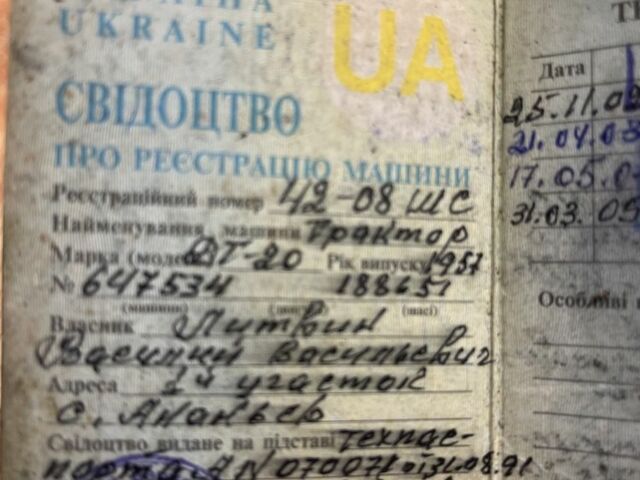 UKRAINE
UA
СВІДОЦТВО
ПРО РЕЄСТРАЦІЮ МАШИНИ
Реєстраційний номер 42-08 ШС
Найменування машини Трактор
Марка ДТ-20 Рік випуску 1957
№ 647534 188651
(машини) (шасі)
Власник Литвин
Василий Васильевич
Адреса участок
с. Ананьев
Свідоцтво видане на підставі техпас-
порта
Дата
25.11.0
21.04.0
17.05.0
31.03.0
Особливі